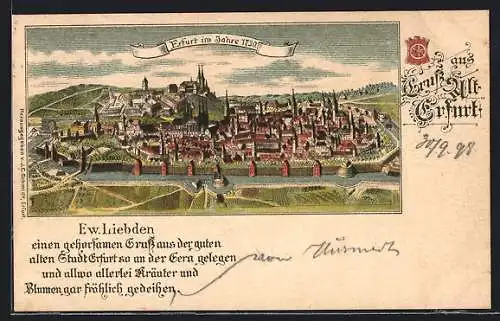 Erfurt im Jahre 1730
Gruß aus
Alt-
Erfurt.
30/9. 98
Herausgegeben v. J. C. Schmidt, Erfurt.
Ew. Liebden
einen gehorsamen Gruß aus der guten
alten Stadt Erfurt so an der Gera gelegen
und allwo allerlei Kräuter und
Blumen gar fröhlich gedeihen.